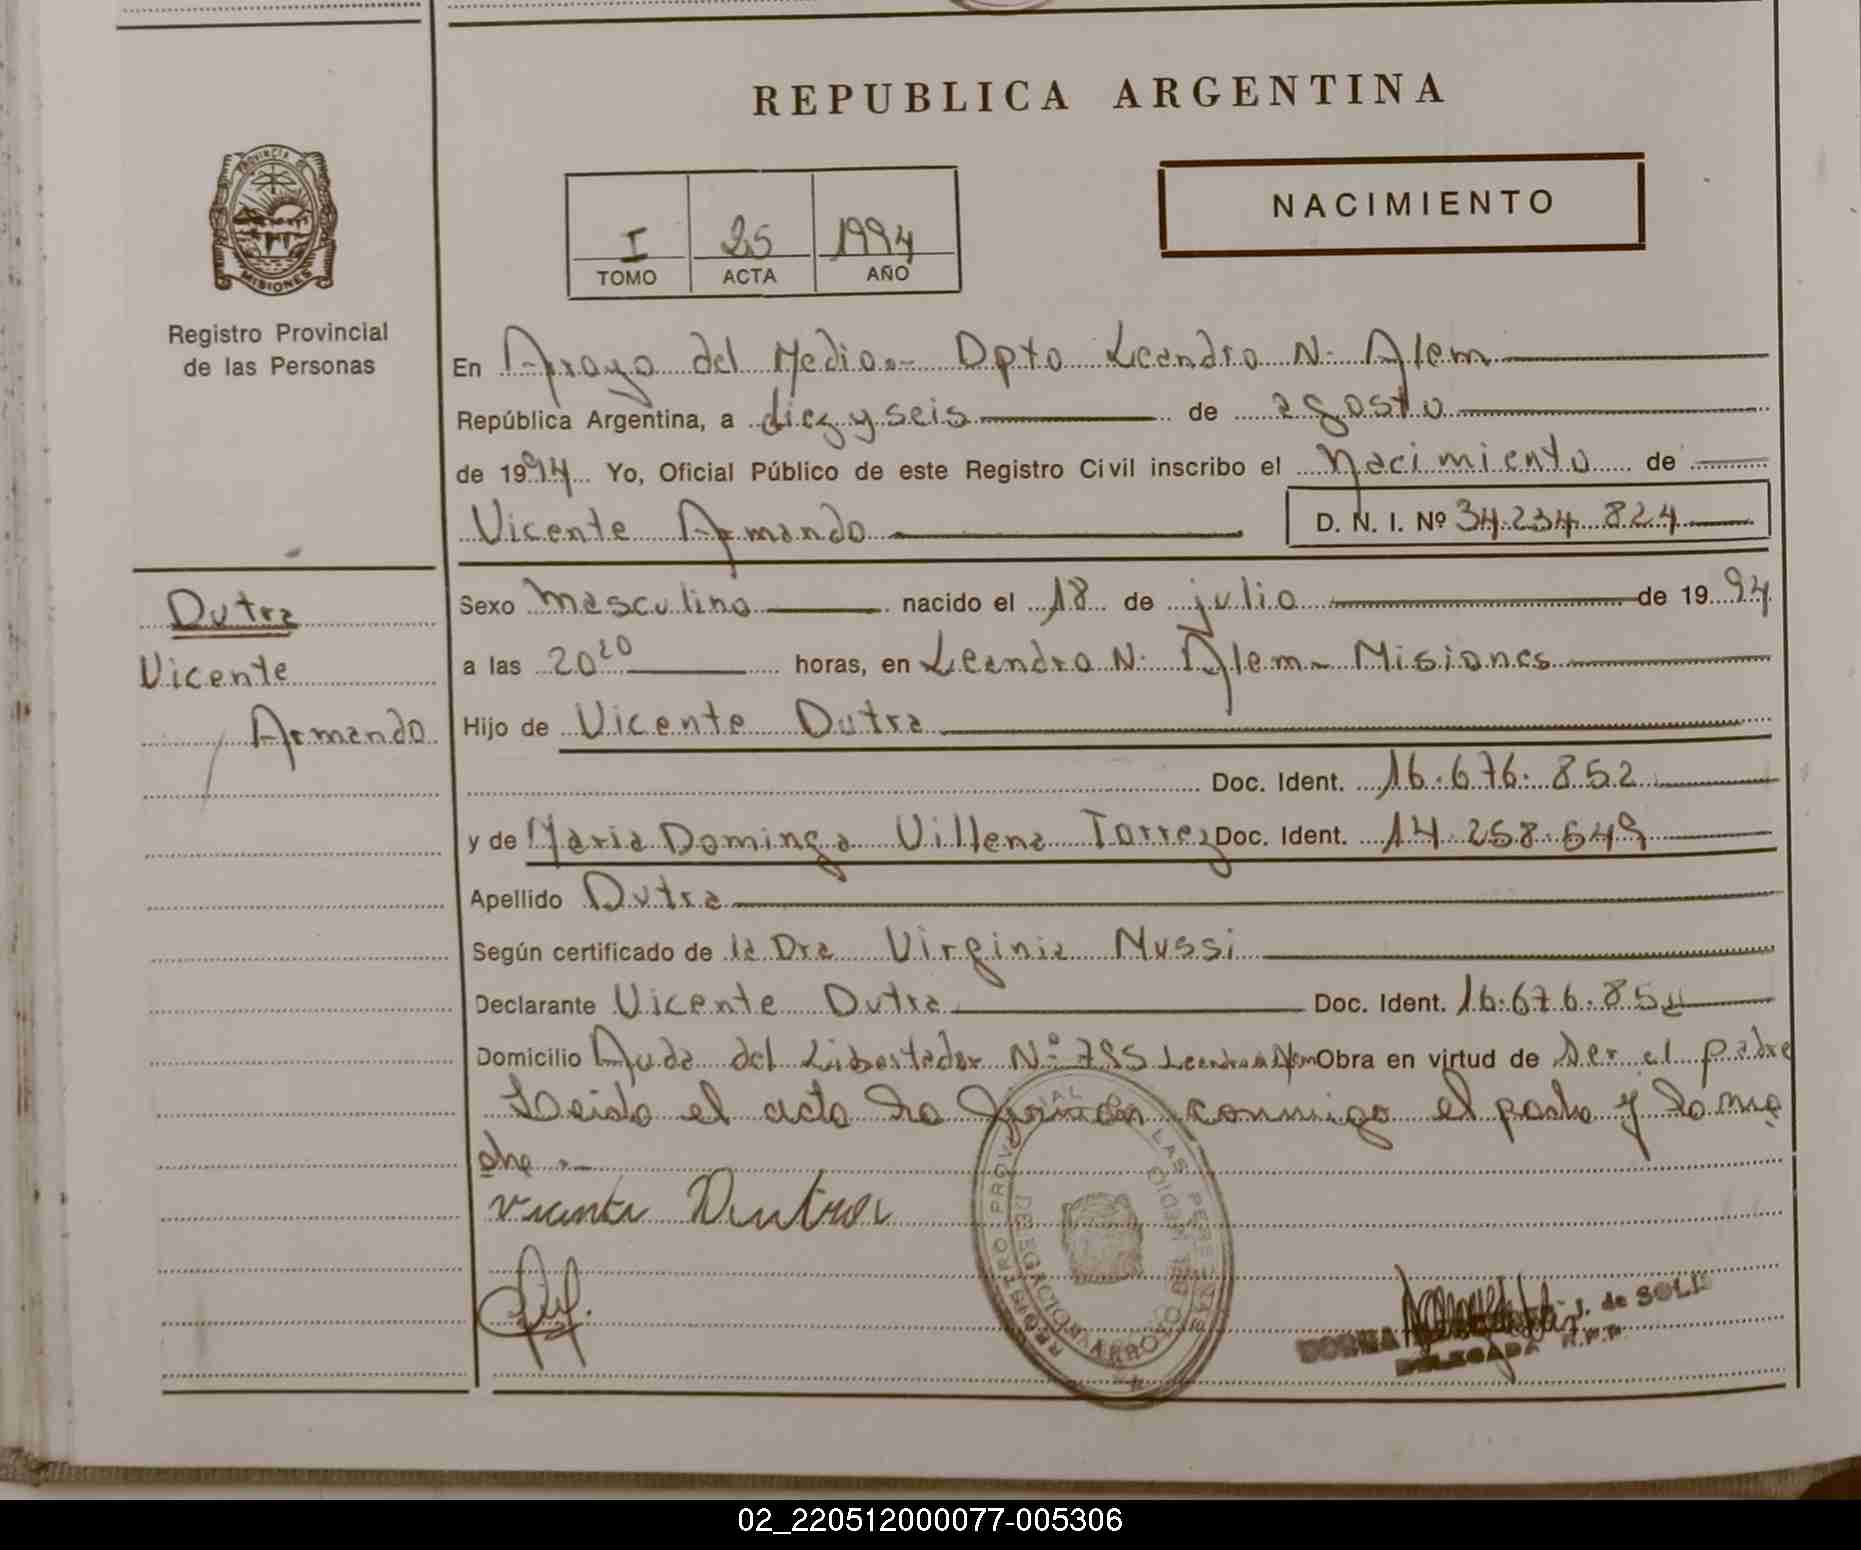 REPUBLICA ARGENTINA
PROVINCIA DE
MISIONES
Registro Provincial
de las Personas
I 25 1994
TOMO ACTA AÑO
NACIMIENTO
En Arroyo del Medio.- Dpto Leandro N. Alem
República Argentina, a diez y seis de agosto
de 1994 Yo, Oficial Público de este Registro Civil inscribo el Nacimiento de
Vicente Armando D. N. I. Nº 34.234.824
Dutra
Vicente
Armando
Sexo Masculino nacido el 18 de julio de 1994
a las 20 20 horas, en Leandro N. Alem - Misiones
Hijo de Vicente Dutra
Doc. Ident. 16.676.852
y de Maria Dominga Villena Torrez Doc. Ident. 14.258.549
Apellido Dutra
Según certificado de la Dra Virginia Mussi
Declarante Vicente Dutra Doc. Ident. 16.676.852
Domicilio Avda del Libertador Nº 795 Leandro N Alem Obra en virtud de Ser el padre
Leida el acta la firman conmigo el padre y la ma
dre.-
Vicente Dutra
REGISTRO PROVINCIAL DE LAS PERSONAS
DELEGACION ARROYO DEL MEDIO
J. de SOLIS
DELEGADA R.P.P.
02_220512000077-005306